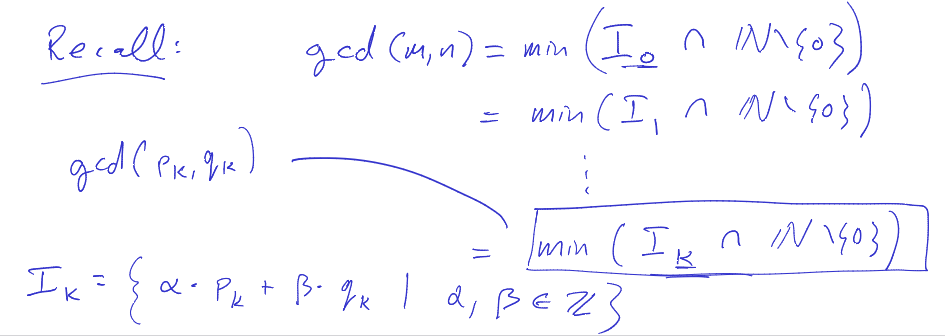 Recall: gcd(m,n) = min(I₀ ∩ ℕ\{0})
= min(I₁ ∩ ℕ\{0})
gcd(pₖ,qₖ)
⋮
= min(Iₖ ∩ ℕ\{0})
Iₖ = {α·pₖ + β·qₖ | α, β ∈ ℤ}